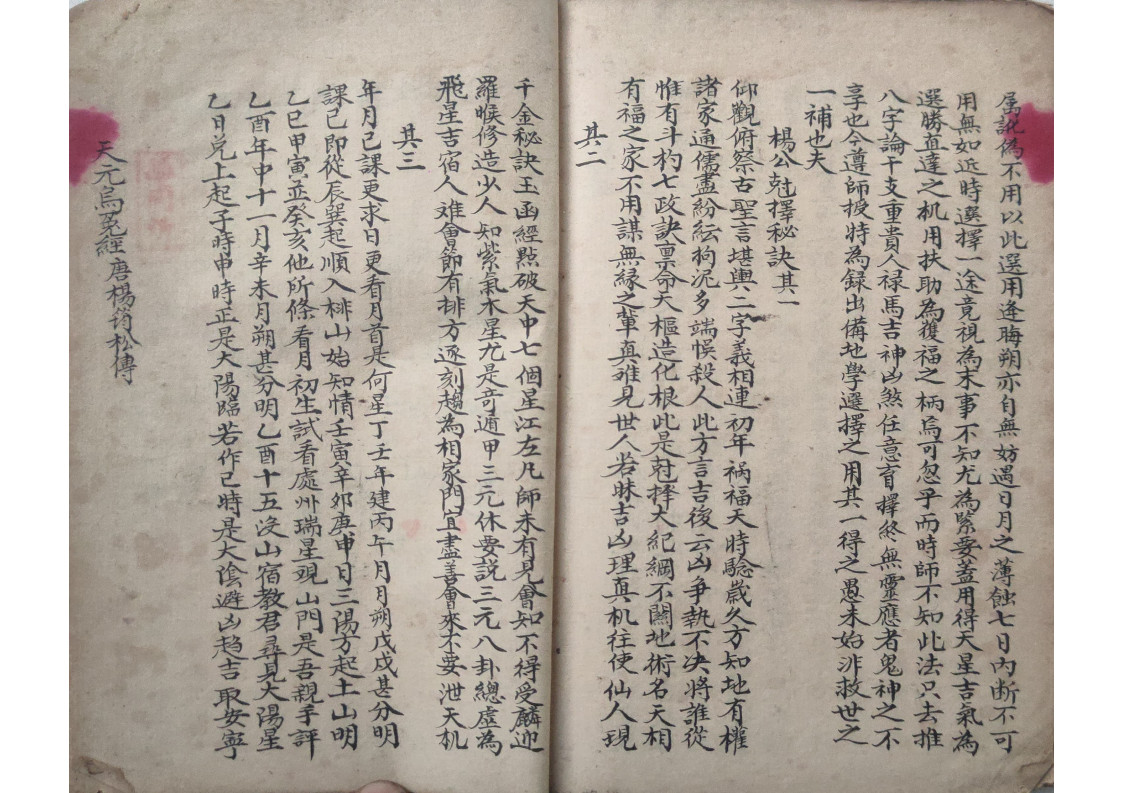 属訛偽不用以此選用逢晦朔亦自無妨遇日月之薄蝕七日內断不可
用無如近時選擇一途竟視為末事不知尤為緊要蓋用得天星吉氣為
選勝直達之机用扶助為獲福之柄烏可忽乎而時師不知此法只去推
八字論干支重貴人禄馬吉神凶煞任意盲擇終無靈應者鬼神之不
享也今遵師授特為録出備地學選擇之用其一得之愚未始非救世之
一補也夫
楊公尅擇秘訣其一
仰觀俯察古聖言堪輿二字義相連初年祸福天時驗歲久方知地有權
諸家通儒盡紛紜拘泥多端悮殺人此方言吉後云凶争執不决將誰從
惟有斗杓七政訣禀命天樞造化根此是尅擇大紀綱不關地術名天相
有福之家不用謀無緣之輩真难見世人若昧吉凶理真机往使仙人現
其二
千金秘訣玉函經點破天中七個星江左凡師未有見會知不得受麟迎
羅睺修造少人知紫氣木星尤是竒遁甲三元休要説三元八卦總虛為
飛星吉宿人难會節有排方逐刻趨為相家門宜盡善會來不要泄天机
其三
年月已課更求日更看月首是何星丁壬年建丙午月月朔戊戌甚分明
課己即從辰巽起順入桃山始知情壬寅辛夘庚申日三陽方起土山明
乙巳甲寅並癸亥他所條看月初生試看處州瑞星現山門是吾親手評
乙酉年中十一月辛未月朔甚分明乙酉十五没山宿教君尋見太陽星
乙日兑上起子時申時正是大陽臨若作己時是大陰避凶趋吉取安寧
天元烏兎經唐楊筠松傳